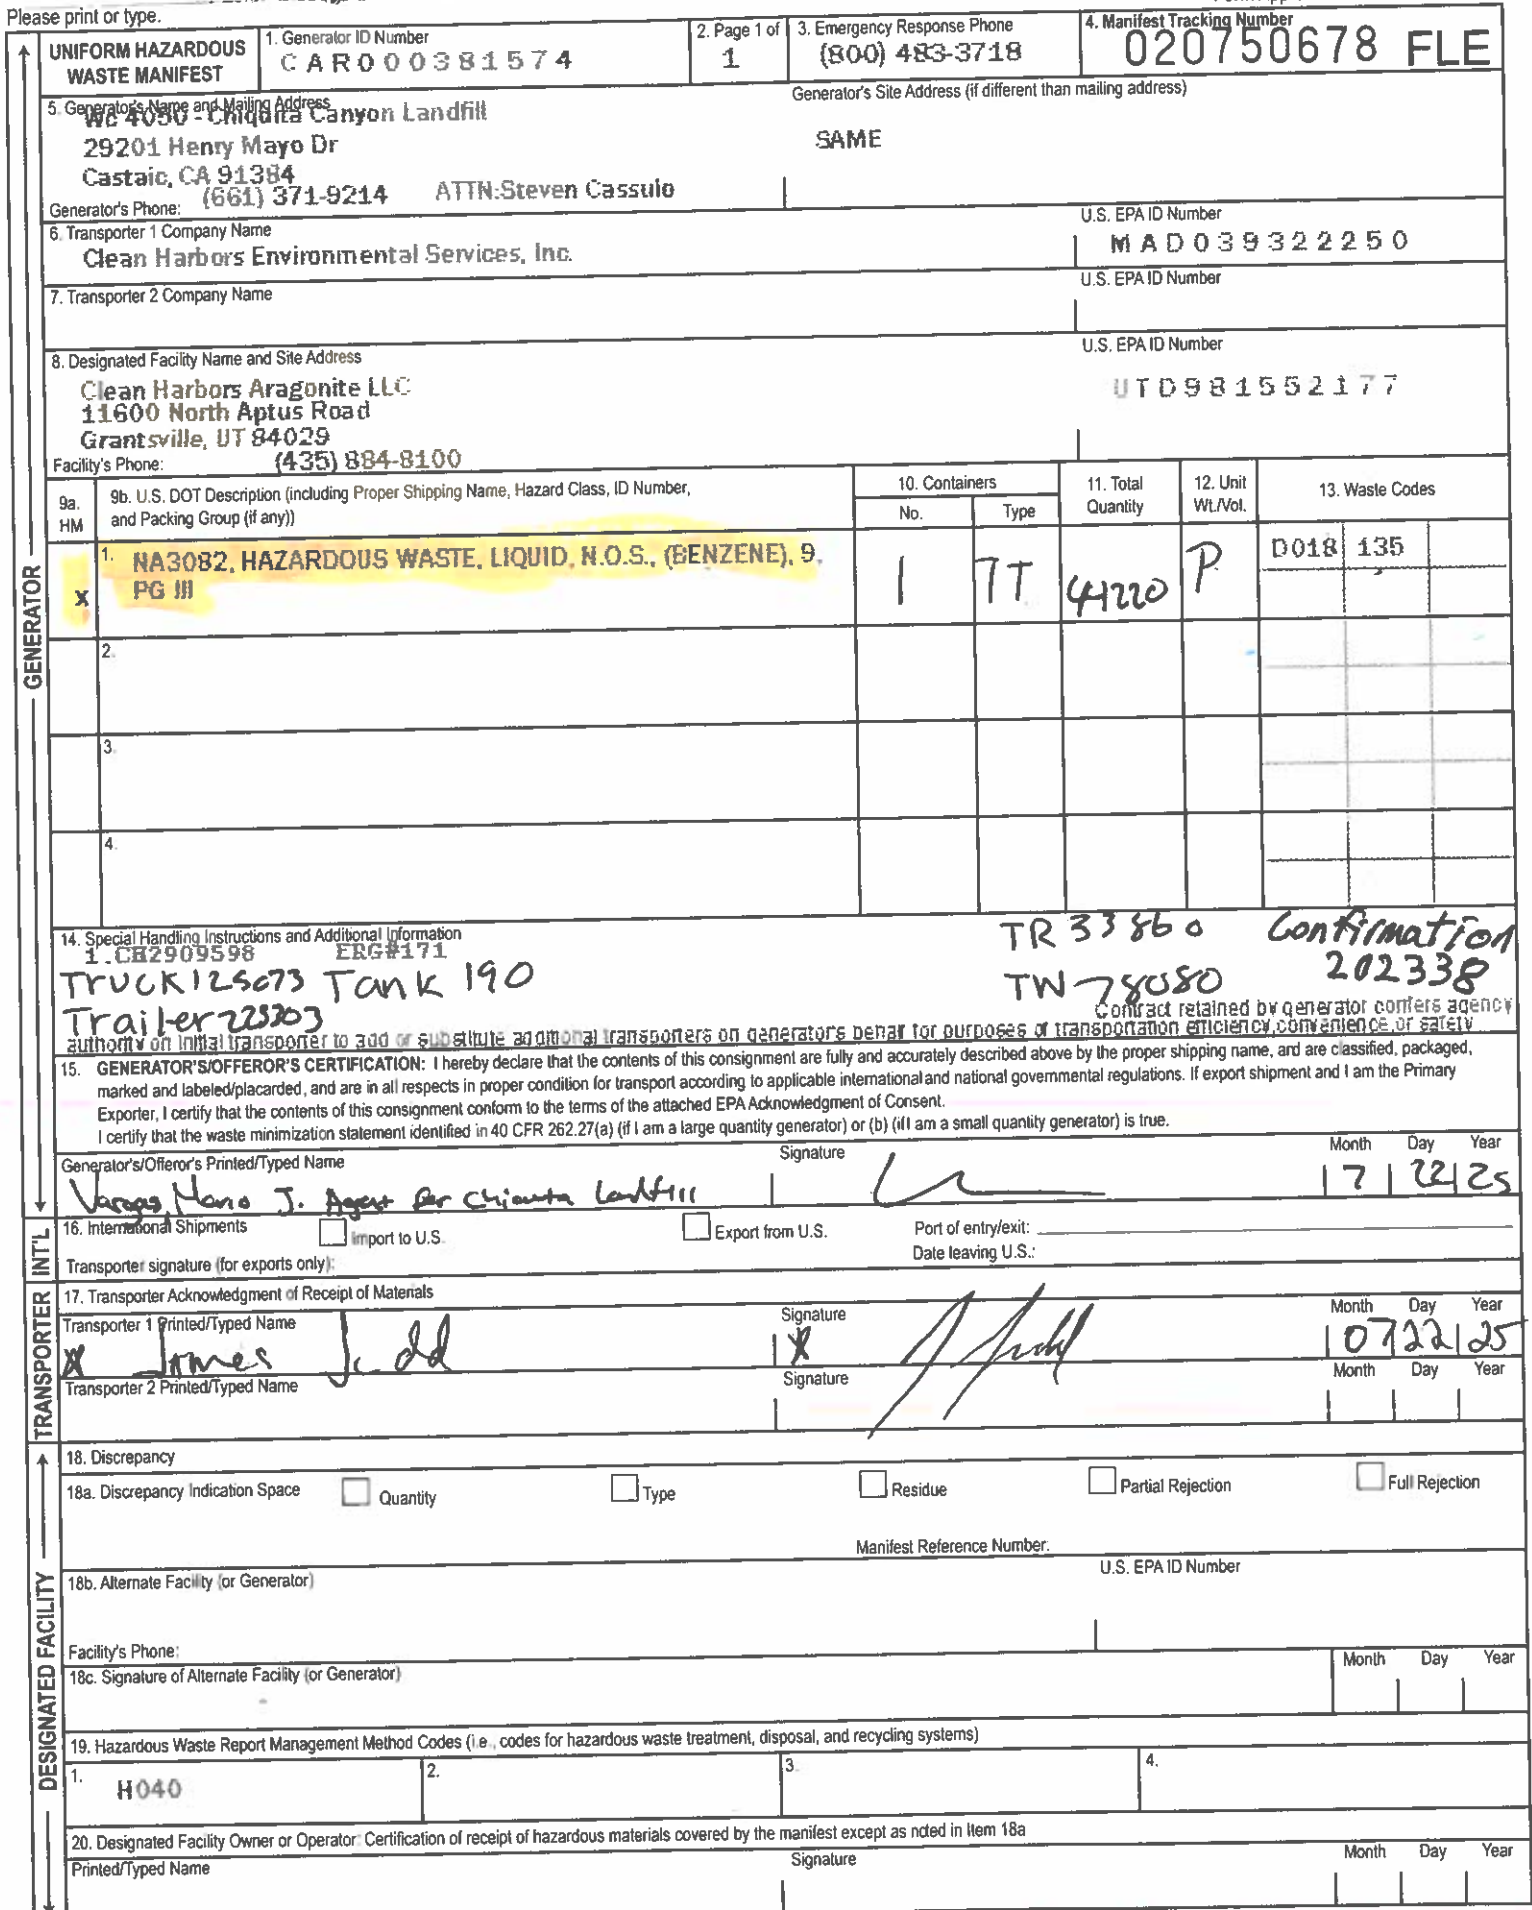 Please print or type.
UNIFORM HAZARDOUS WASTE MANIFEST
1. Generator ID Number
CAR000381574
2. Page 1 of
1
3. Emergency Response Phone
(800) 483-3718
4. Manifest Tracking Number
020750678 FLE
5. Generator's Name and Mailing Address
WC 4050 - Chiquita Canyon Landfill
29201 Henry Mayo Dr
Castaic, CA 91384
Generator's Phone: (661) 371-9214 ATTN:Steven Cassulo
Generator's Site Address (if different than mailing address)
SAME
6. Transporter 1 Company Name
Clean Harbors Environmental Services, Inc.
U.S. EPA ID Number
MAD039322250
7. Transporter 2 Company Name
U.S. EPA ID Number
8. Designated Facility Name and Site Address
Clean Harbors Aragonite LLC
11600 North Aptus Road
Grantsville, UT 84029
Facility's Phone: (435) 884-8100
U.S. EPA ID Number
UTD981552177
9a. HM
9b. U.S. DOT Description (including Proper Shipping Name, Hazard Class, ID Number,
and Packing Group (if any))
10. Containers
No.
Type
11. Total Quantity
12. Unit Wt./Vol.
13. Waste Codes
X
1. NA3082, HAZARDOUS WASTE, LIQUID, N.O.S., (BENZENE), 9,
PG III
1 TT 41220 P
D018 135
2.
3.
4.
14. Special Handling Instructions and Additional Information
1.CH2909598 ERG#171
TR 33860 Confirmation
Truck 125073 Tank 190
TW 78080 202338
Trailer 225203
Contract retained by generator confers agency
authority on initial transporter to add or substitute additional transporters on generators behalf for purposes of transportation efficiency, convenience, or safety
15. GENERATOR'S/OFFEROR'S CERTIFICATION: I hereby declare that the contents of this consignment are fully and accurately described above by the proper shipping name, and are classified, packaged,
marked and labeled/placarded, and are in all respects in proper condition for transport according to applicable international and national governmental regulations. If export shipment and I am the Primary
Exporter, I certify that the contents of this consignment conform to the terms of the attached EPA Acknowledgment of Consent.
I certify that the waste minimization statement identified in 40 CFR 262.27(a) (if I am a large quantity generator) or (b) (if I am a small quantity generator) is true.
Generator's/Offeror's Printed/Typed Name
Signature
Month Day Year
Vargas, Mario J. Agent for Chiquita Landfill
7 22 25
16. International Shipments
Import to U.S.
Export from U.S.
Port of entry/exit:
Date leaving U.S.:
Transporter signature (for exports only):
17. Transporter Acknowledgment of Receipt of Materials
Transporter 1 Printed/Typed Name
Signature
Month Day Year
X James Judd
X
07 22 25
Transporter 2 Printed/Typed Name
Signature
Month Day Year
18. Discrepancy
18a. Discrepancy Indication Space
Quantity
Type
Residue
Partial Rejection
Full Rejection
Manifest Reference Number:
18b. Alternate Facility (or Generator)
U.S. EPA ID Number
Facility's Phone:
18c. Signature of Alternate Facility (or Generator)
Month Day Year
19. Hazardous Waste Report Management Method Codes (i.e., codes for hazardous waste treatment, disposal, and recycling systems)
1. H040
2.
3.
4.
20. Designated Facility Owner or Operator: Certification of receipt of hazardous materials covered by the manifest except as noted in Item 18a
Printed/Typed Name
Signature
Month Day Year
GENERATOR
INT'L
TRANSPORTER
DESIGNATED FACILITY